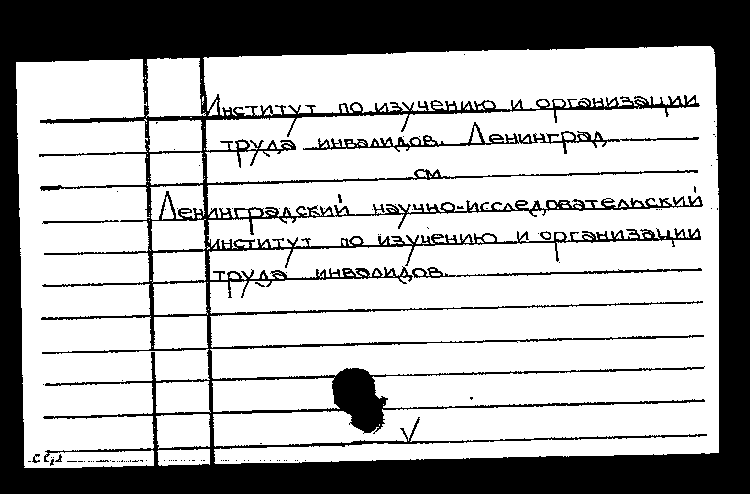 Институт по изучению и организации
труда инвалидов. Ленинград
см.
Ленинградский научно-исследовательский
институт по изучению и организации
труда инвалидов.